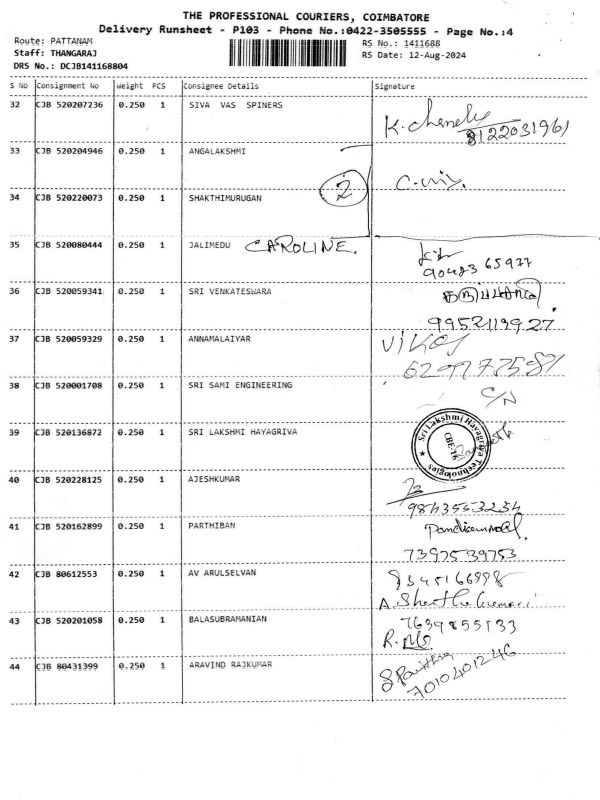 THE PROFESSIONAL COURIERS, COIMBATORE
Delivery Runsheet - P103 - Phone No.:0422-3505555 - Page No.:4
Route: PATTANAM
Staff: THANGARAJ
DRS No.: DCJB141168804
RS No.: 1411688
RS Date: 12-Aug-2024
S No Consignment No Weight PCS Consignee Details Signature
32 CJB 520207236 0.250 1 SIVA VAS SPINERS
8122031961
33 CJB 520204946 0.250 1 ANGALAKSHMI
2
34 CJB 520220073 0.250 1 SHAKTHIMURUGAN
35 CJB 520080444 0.250 1 JALIMEDU CAROLINE.
36 CJB 520059341 0.250 1 SRI VENKATESWARA
37 CJB 520059329 0.250 1 ANNAMALAIYAR
38 CJB 520001708 0.250 1 SRI SAMI ENGINEERING
C/N
39 CJB 520136872 0.250 1 SRI LAKSHMI HAYAGRIVA
Sri Lakshmi Hayagriva Technologies
CBE-16
40 CJB 520228125 0.250 1 AJESHKUMAR
41 CJB 520162899 0.250 1 PARTHIBAN
42 CJB 80612553 0.250 1 AV ARULSELVAN
43 CJB 520201058 0.250 1 BALASUBRAMANIAN
7639855133
44 CJB 80431399 0.250 1 ARAVIND RAJKUMAR
7010401246